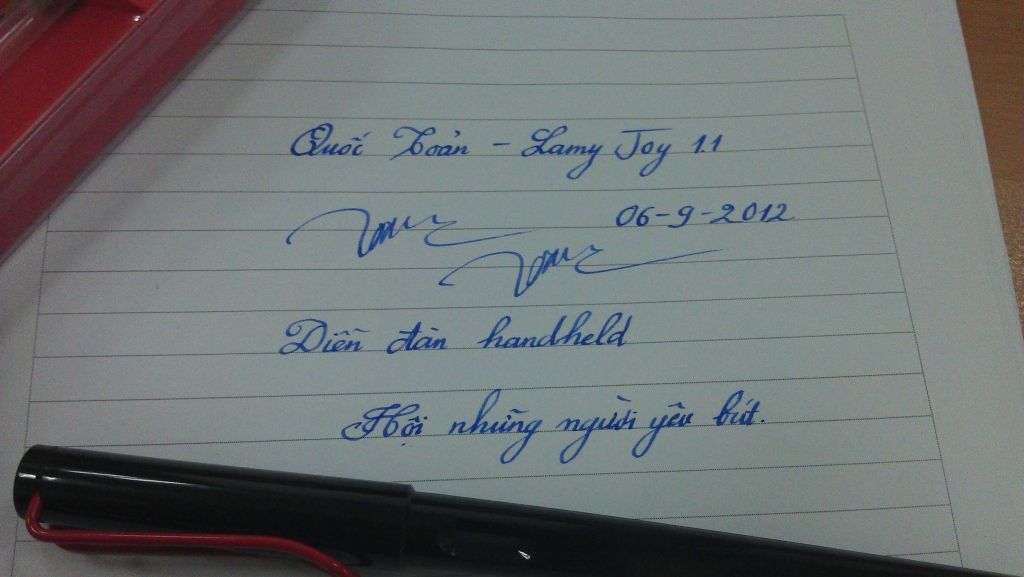 Quốc Toản - Lamy Joy 1.1
06-9-2012
Diễn đàn handheld
Hội những người yêu bút.